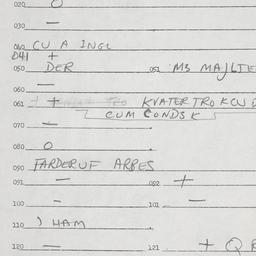 020 O
030 —
040 CU A INGL
041 +
050 DER 051 M3 MAJLTE
060 —
061 + KVATER TRO KCU D
CUM CONDSK
070 —
080 O
090 FARDERUF ARBES
091 — 092 +
100 — 101 —
110 ) HAM
120 — 121 + Q R